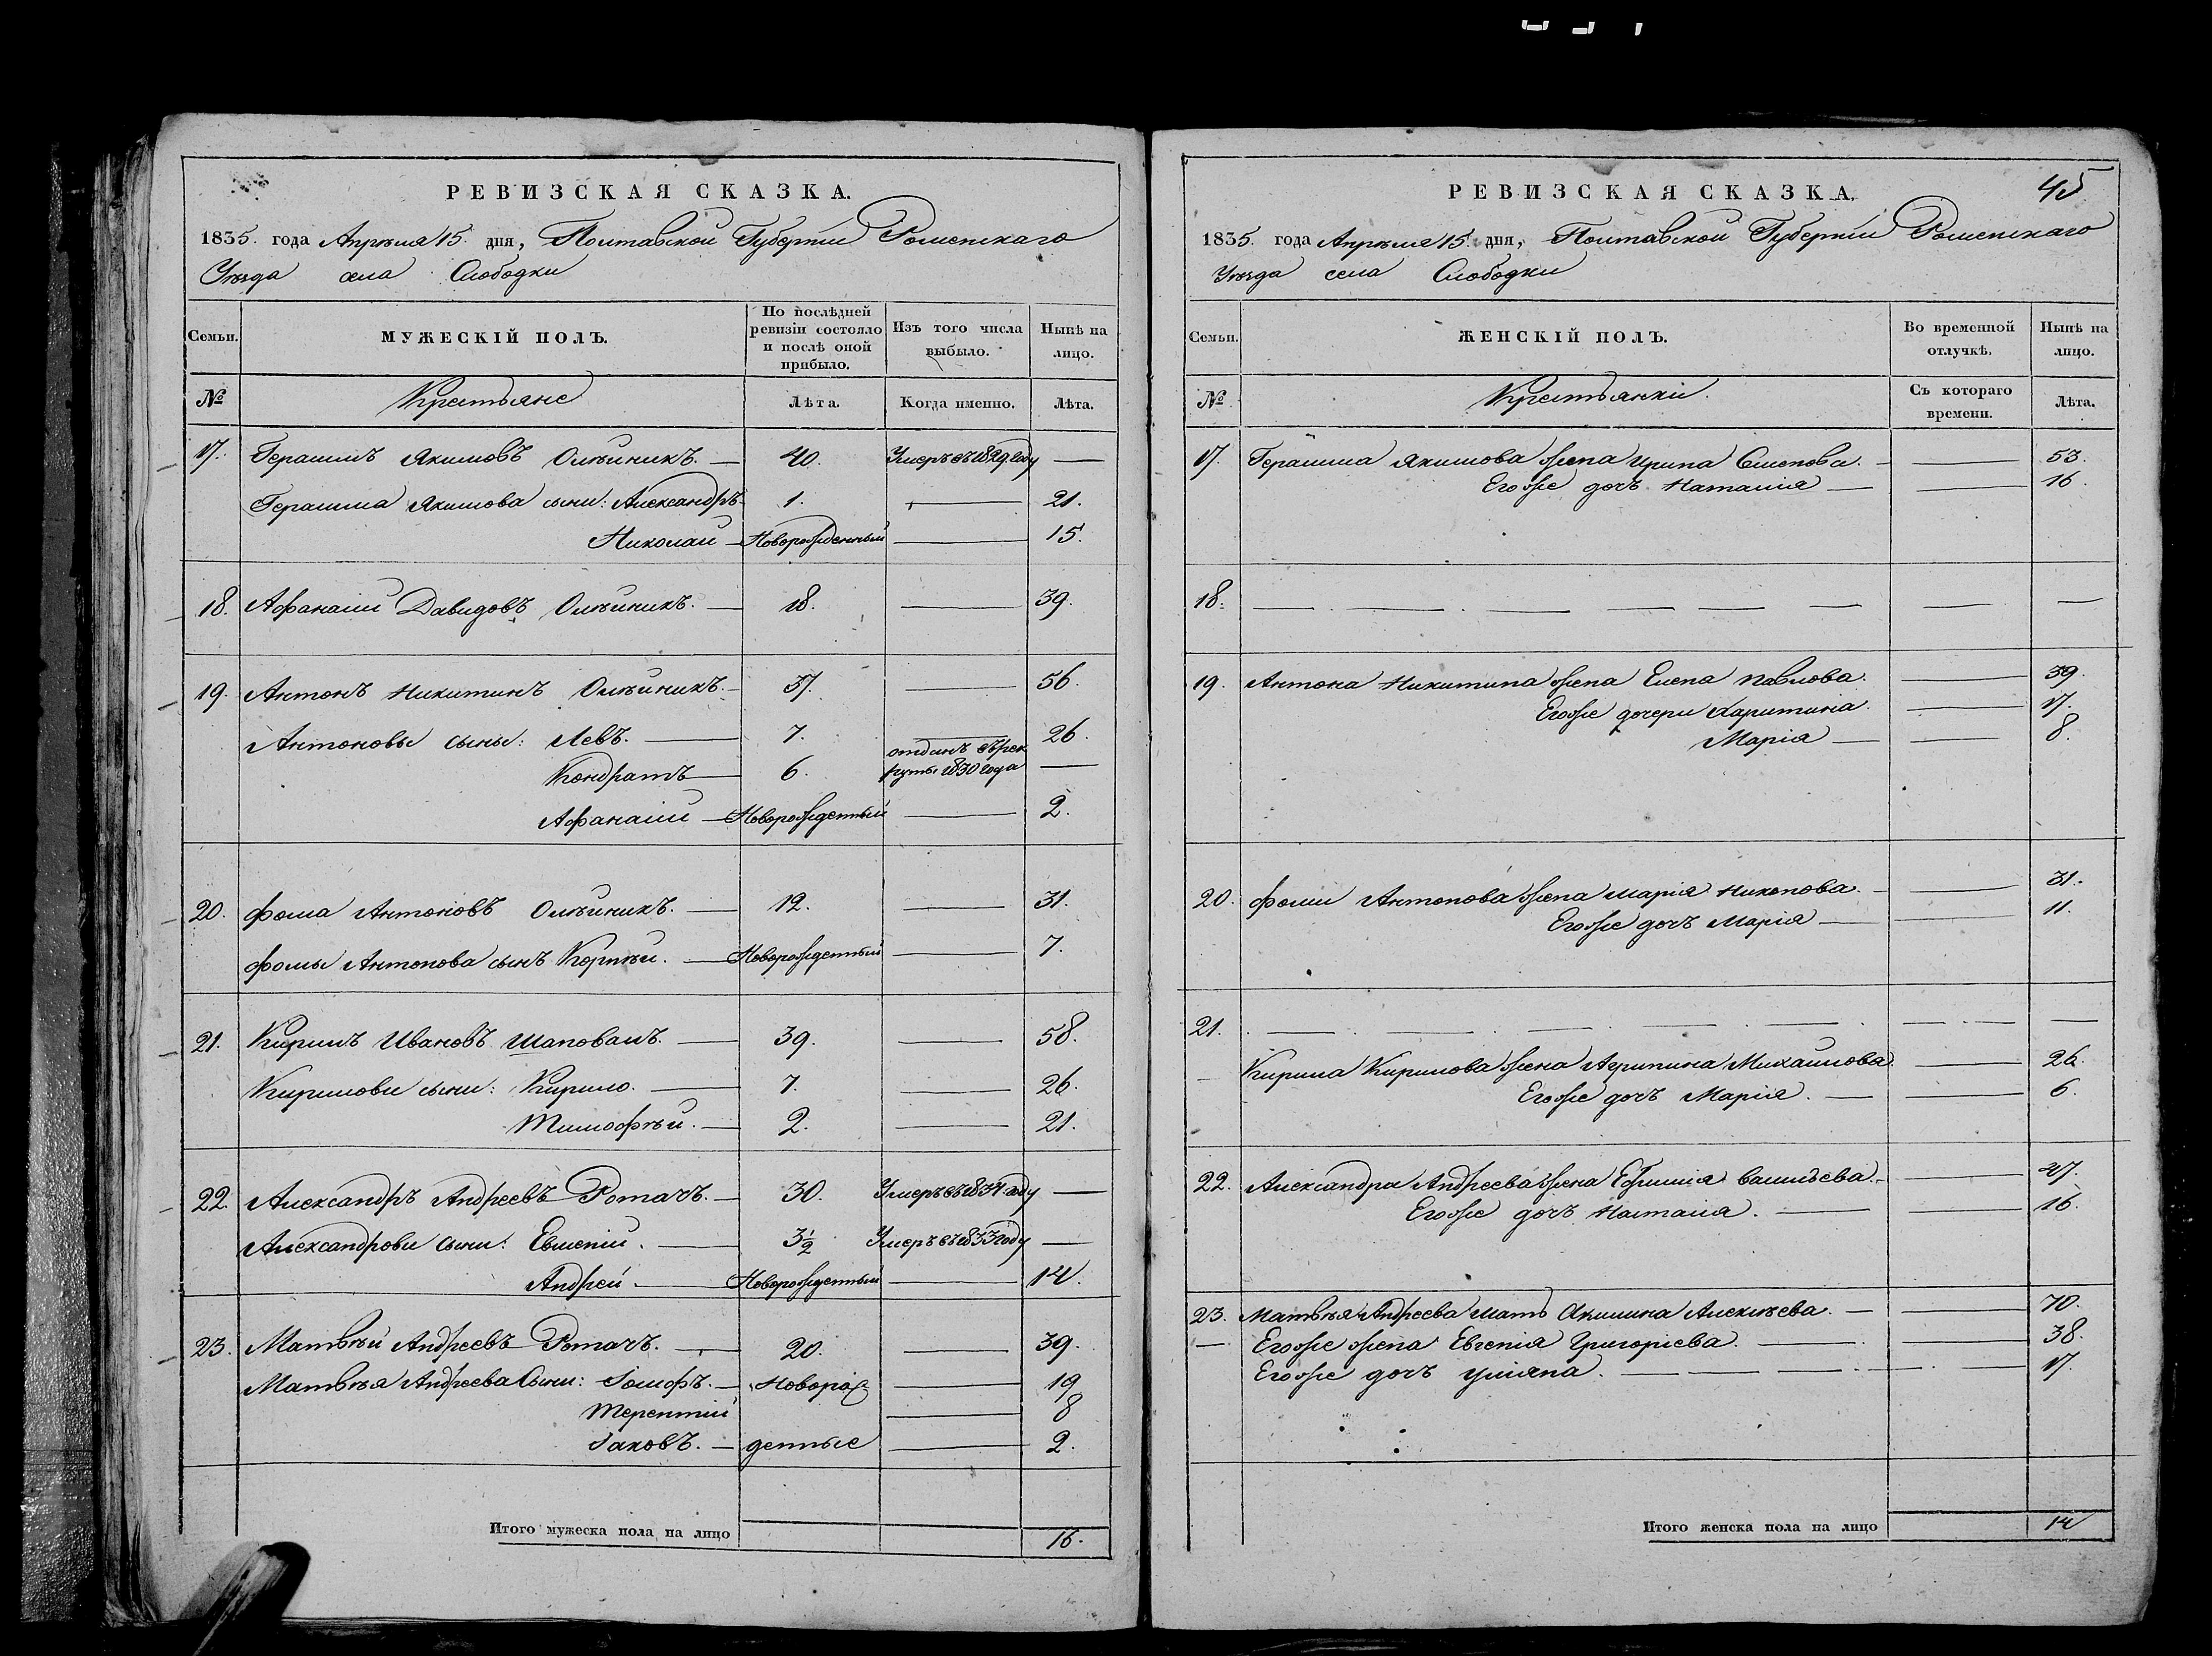 РЕВИЗСКАЯ СКАЗКА.
1835. года Апрѣля 15. дня, Полтавской Губерніи Роменскаго
Уѣзда села Слободки
Семьи. МУЖЕСКІЙ ПОЛЪ. По послѣдней ревизіи состояло и послѣ оной прибыло. Изъ того числа выбыло. Нынѣ на лицо.
№ Крестьяне Лѣта. Когда именно. Лѣта.
17. Герасимъ Якимовъ Олѣйникъ. — 40. Умеръ въ 1829 году —
Герасима Якимова сыни: Александръ 1. — 21.
Николай — Новорожденный — 15.
18. Афанасій Давидовъ Олѣйникъ. — 18. — 39.
19. Антонъ Никитинъ Олѣйникъ. — 37. — 56.
Антоновы сыны: Левъ. — 7. — 26.
Кондратъ — 6. отданъ въ рек руты 1830 года —
Афанасій — Новорожденный — 2.
20. Фома Антоновъ Олѣйникъ. — 12. — 31.
Фомы Антонова сынъ Корнѣй. — Новорожденный — 7.
21. Кирилъ Ивановъ Шаповалъ. — 39. — 58.
Кириловы сыни: Кирило. — 7. — 26.
Тимофѣй. — 2. — 21.
22. Александръ Андреевъ Ротачъ. — 30. Умеръ въ 1834 году —
Александровы сыни: Евменій. — 3½ Умеръ въ 1833 году —
Андрей — Новорожденный — 14.
23. Матвѣй Андреевъ Ротачъ. — 20. — 39.
Матвѣя Андреева Сыни: Іосифъ. — Новорож — 19
Терентій — 8
Іаковъ. — денные — 2.
Итого мужеска пола на лицо 16.
РЕВИЗСКАЯ СКАЗКА. 45
1835. года Апрѣля 15. дня, Полтавской Губерніи Роменскаго
Уѣзда села Слободки
Семьи. ЖЕНСКІЙ ПОЛЪ. Во временной отлучкѣ. Нынѣ на лицо.
№ Крестьянки. Съ котораго времени. Лѣта.
17. Герасима Якимова жена Ирина Семенова. — 53.
Его же дочь Наталія — 16.
18. — — — — — —
19. Антона Никитина жена Елена Павлова. — 39.
Его же дочери Харитина. — 17.
Марія — 8.
20. Фомы Антонова жена Марія Никонова. — 31.
Его же дочь Марія — 11.
21. — — — — — —
Кирила Кирилова жена Агрипина Михайлова — 26.
Его же дочь Марія. — 6.
22. Александра Андреева жена Ефимія Васильева. — 47.
Его же дочь Наталія. — 16.
23. Матвѣя Андреева мать Акилина Алексѣева. — 70.
— Его же жена Евгенія Григоріева. — 38.
Его же дочь Уліяна. — 17.
Итого женска пола на лицо 14